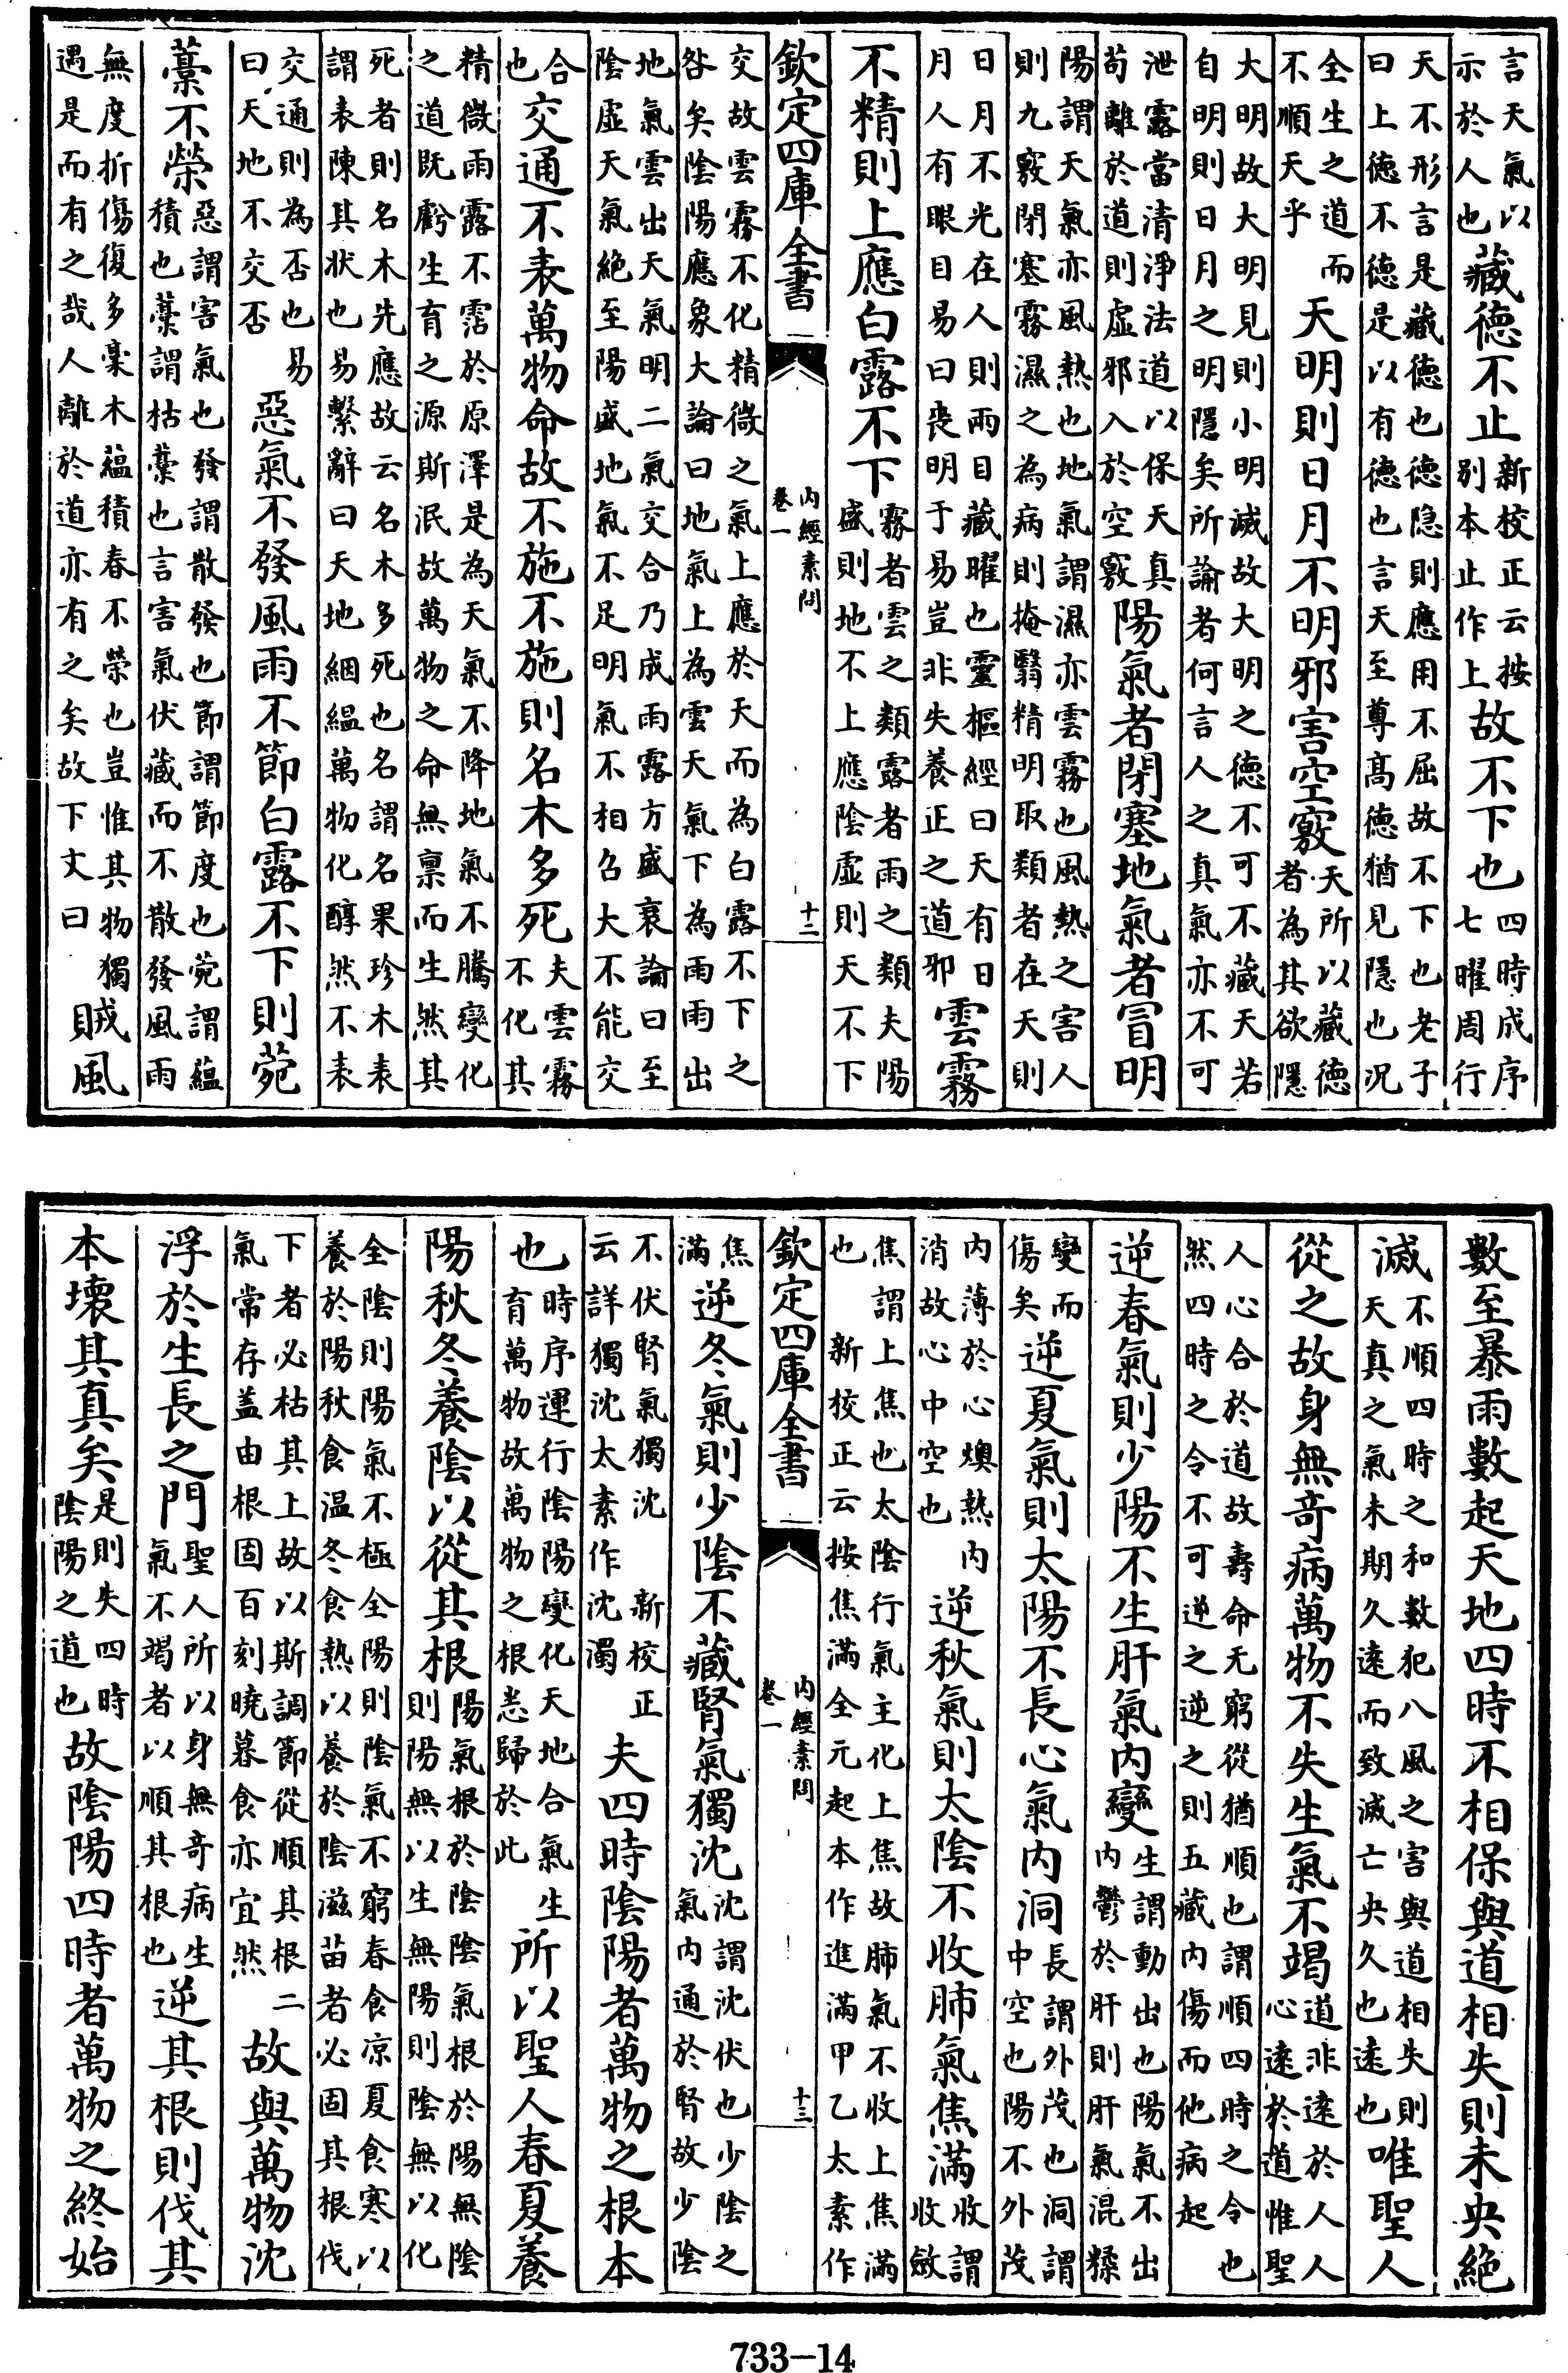 言天氣以示於人也藏德不止新校正云按别本止作上故不下也四時成序七曜周行
天不形言是藏德也德隐則應用不屈故不下也老子曰上德不德是以有德也言天至尊髙德猶見隱也况
全生之道而不順天乎天明則日月不明邪害空竅天所以藏德者為其欲隱
大明故大明見則小明滅故大明之德不可不藏天若自明則日月之明隱矣所諭者何言人之真氣亦不可
泄露當清淨法道以保天真苟離於道則虛邪入於空竅陽氣者閉塞地氣者冒明
陽謂天氣亦風熱也地氣謂濕亦雲霧也風熱之害人則九竅閉塞霧濕之為病則掩翳精明取類者在天則
日月不光在人則兩目藏曜也靈樞經曰天有日月人有眼目易曰喪明于易豈非失養正之道邪雲霧
不精則上應白露不下霧者雲之類露者雨之類夫陽盛則地不上應陰虛則天不下
欽定四庫全書 内經素問 卷一 十二
交故雲霧不化精微之氣上應於天而為白露不下之咎矣陰陽應象大論曰地氣上為雲天氣下為雨雨出
地氣雲出天氣明二氣交合乃成雨露方盛衰論曰至陰虛天氣絶至陽盛地氣不足明氣不相召大不能交
合也交通不表萬物命故不施不施則名木多死夫雲霧不化其
精微雨露不霑於原澤是為天氣不降地氣不騰變化之道既虧生育之源斯泯故萬物之命無禀而生然其
死者則名木先應故云名木多死也名謂名果珍木表謂表陳其狀也易繫辭曰天地絪緼萬物化醇然不表
交通則為否也易曰天地不交否惡氣不發風雨不節白露不下則菀
藁不榮惡謂害氣也發謂散發也節謂節度也菀謂蘊積也藁謂枯藁也言害氣伏藏而不散發風雨
無度折傷復多槀木蘊積春不榮也豈惟其物獨遇是而有之哉人離於道亦有之矣故下文曰賊風
數至暴雨數起天地四時不相保與道相失則未央絕
滅不順四時之和數犯八風之害與道相失則天真之氣未期久逺而致滅亡央久也逺也唯聖人
從之故身無竒病萬物不失生氣不竭道非逺於人人心逺於道惟聖
人心合於道故壽命无窮從猶順也謂順四時之令也然四時之令不可逆之逆之則五藏内傷而他病起
逆春氣則少陽不生肝氣内變生謂動出也陽氣不出内鬱於肝則肝氣混糅
變而傷矣逆夏氣則太陽不長心氣内洞長謂外茂也洞謂中空也陽不外茂
内薄於心燠熱内消故心中空也逆秋氣則太陰不收肺氣焦滿收謂收斂
焦謂上焦也太陰行氣主化上焦故肺氣不收上焦滿也新校正云按焦滿全元起本作進滿甲乙太素作
欽定四庫全書 内經素問 卷一 十三
焦滿逆冬氣則少陰不藏腎氣獨沈沈謂沈伏也少陰之氣内通於腎故少陰
不伏腎氣獨沈新校正云詳獨沈太素作沈濁夫四時陰陽者萬物之根本
也時序運行陰陽變化天地合氣生育萬物故萬物之根悉歸於此所以聖人春夏養
陽秋冬養陰以從其根陽氣根於陰陰氣根於陽無陰則陽無以生無陽則陰無以化
全陰則陽氣不極全陽則陰氣不窮春食凉夏食寒以養於陽秋食温冬食熱以養於陰滋苗者必固其根伐
下者必枯其上故以斯調節從順其根二氣常存盖由根固百刻曉暮食亦宜然故與萬物沈
浮於生長之門聖人所以身無竒病生氣不竭者以順其根也逆其根則伐其
本壊其真矣是則失四時陰陽之道也故陰陽四時者萬物之終始
733-14